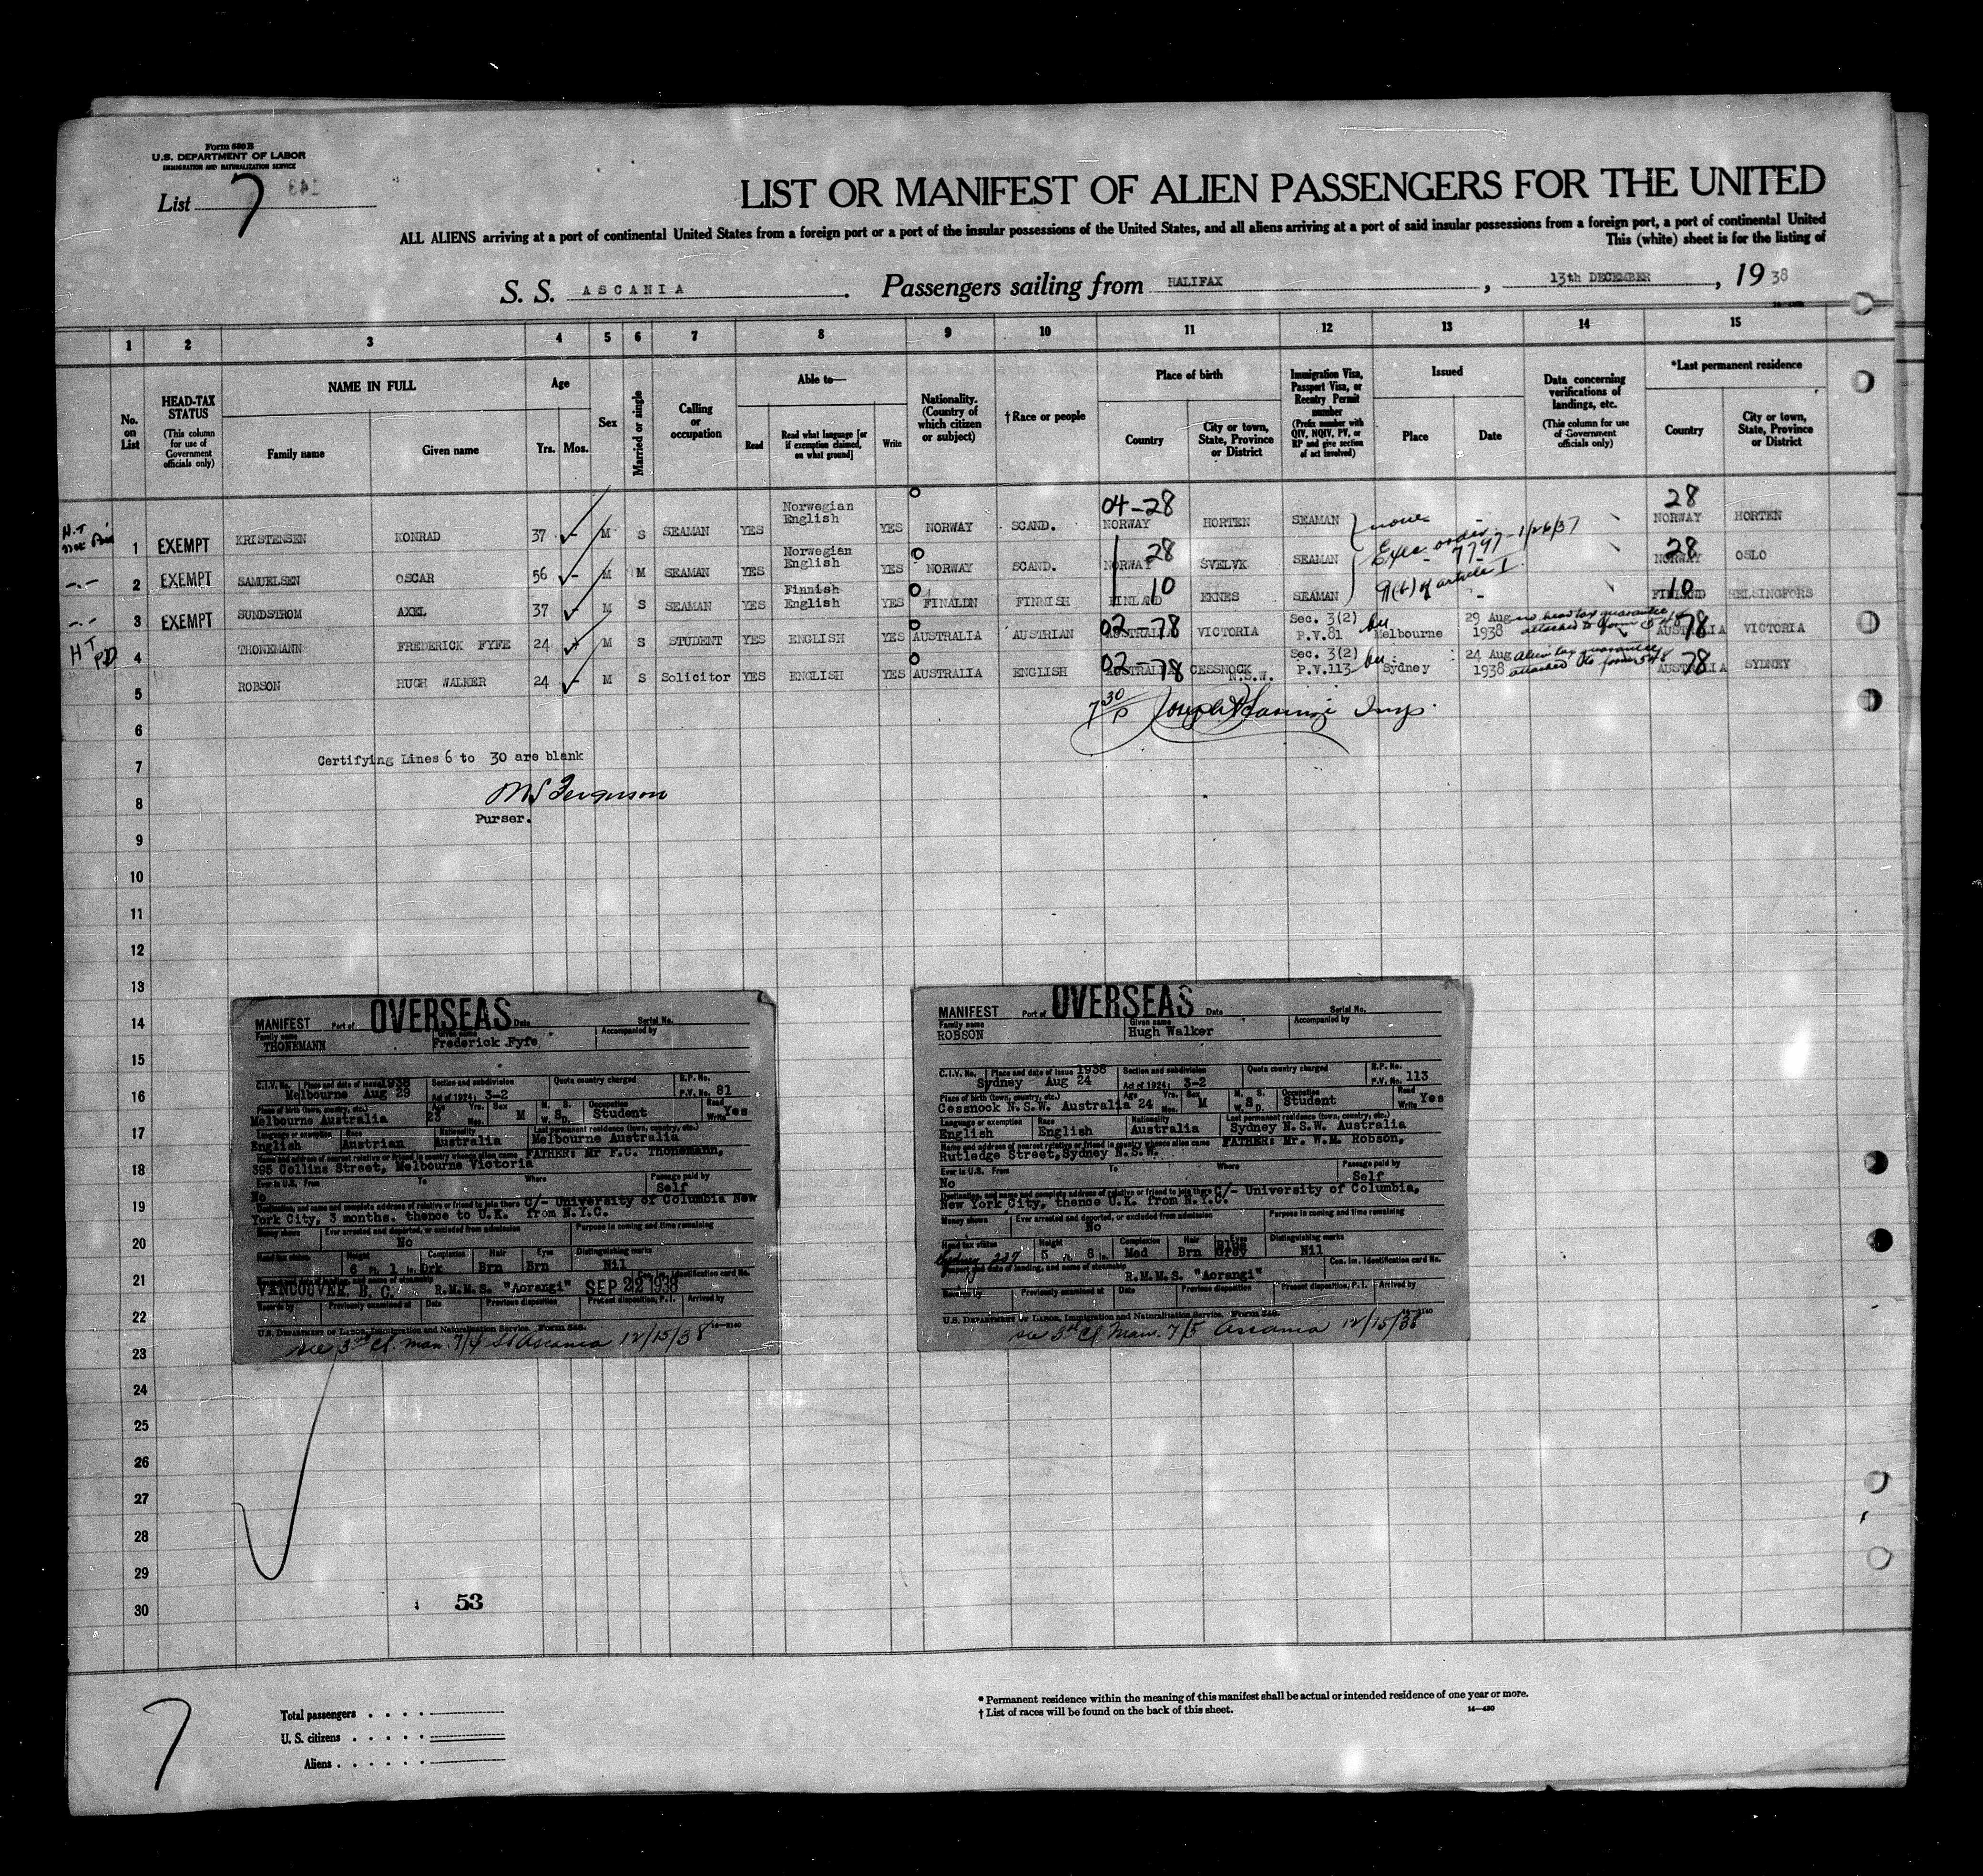 Form 500 B
U.S. DEPARTMENT OF LABOR
IMMIGRATION AND NATURALIZATION SERVICE
List 7
143
LIST OR MANIFEST OF ALIEN PASSENGERS FOR THE UNITED
ALL ALIENS arriving at a port of continental United States from a foreign port or a port of the insular possessions of the United States, and all aliens arriving at a port of said insular possessions from a foreign port, a port of continental United
This (white) sheet is for the listing of
S. S. ASCANIA. Passengers sailing from HALIFAX, 13th DECEMBER, 19 38
1 2 3 4 5 6 7 8 9 10 11 12 13 14 15
No. on List
HEAD-TAX STATUS (This column for use of Government officials only)
NAME IN FULL
Family name Given name
Age
Yrs. Mos.
Sex
Married or single
Calling or occupation
Able to—
Read Read what language [or if exemption claimed, on what ground] Write
Nationality. (Country of which citizen or subject)
† Race or people
Place of birth
Country City or town, State, Province or District
Immigration Visa, Passport Visa, or Reentry Permit number (Prefix number with QIV, NQIV, PV, or RP and give section of act involved)
Issued
Place Date
Data concerning verifications of landings, etc. (This column for use of Government officials only)
*Last permanent residence
Country City or town, State, Province or District
H.T. 1 EXEMPT KRISTENSEN KONRAD 37 - M S SEAMAN YES Norwegian English YES NORWAY SCAND. 04-28 NORWAY HORTEN SEAMAN none - 28 NORWAY HORTEN
-.- 2 EXEMPT SAMUELSEN OSCAR 56 - M M SEAMAN YES Norwegian English YES NORWAY SCAND. 28 NORWAY SVELVK SEAMAN Exec. order 7797-1/26/37 28 NORWAY OSLO
-.- 3 EXEMPT SUNDSTROM AXEL 37 M S SEAMAN YES Finnish English YES FINALDN FINNISH 10 FINLAND EKNES SEAMAN 9(b) of article I - 10 FINLAND HELSINGFORS
HT PD 4 THONEMANN FREDERICK FYFE 24 M S STUDENT YES ENGLISH YES AUSTRALIA AUSTRIAN 02-78 AUSTRALIA VICTORIA Sec. 3(2) P.V.81 Melbourne 29 Aug 1938 no head tax guarantee attached to form 548 78 AUSTRALIA VICTORIA
5 ROBSON HUGH WALKER 24 - M S Solicitor YES ENGLISH YES AUSTRALIA ENGLISH 02-78 AUSTRALIA CESSNOCK N.S.W. Sec. 3(2) P.V.113 Sydney 24 Aug 1938 Alien tax guarantee attached to form 548 78 AUSTRALIA SYDNEY
7 30 P Insp.
6
7
Certifying Lines 6 to 30 are blank
8
Ferguson
Purser.
9
10
11
12
13
14
15
16
17
18
19
20
21
22
23
24
25
26
27
28
29
30
MANIFEST Port of OVERSEAS Date Serial No.
Family name THONEMANN Given name Frederick Fyfe Accompanied by
C.I.V. No. Place and date of issue 1938 Melbourne Aug 29 Section and subdivision Act of 1924: 3-2 Quota country charged R.P. No. P.V. No. 81
Place of birth (town, country, etc.) Melbourne Australia Age 23 Yrs. Mos. Sex M M. S. W. D. S Occupation Student Read Write Yes
Language or exemption English Race Austrian Nationality Australia Last permanent residence (town, country, etc.) Melbourne Australia
Name and address of nearest relative or friend in country whence alien came FATHER: Mr F.C. Thonemann,
395 Collins Street, Melbourne Victoria
Ever in U.S. From To Where Passage paid by
No Self
Destination, and name and complete address of relative or friend to join there C/- University of Columbia New
York City, 3 months. thence to U.K. from N.Y.C.
Money shown Ever arrested and deported, or excluded from admission Purpose in coming and time remaining
No
Head tax status Height 6 ft. 1 in. Complexion Drk Hair Brn Eyes Brn Distinguishing marks Nil
Con. Im. Identification card No.
VANCOUVER, B. C. R.M.M.S. "Aorangi" SEP 22 1938
Records by Previously examined at Date Previous disposition Present disposition, P. I. Arrived by
U.S. DEPARTMENT OF LABOR, Immigration and Naturalization Service. FORM 548. 14—2140
see 3rd cl. man. 7/4 SS Ascania 12/15/38
MANIFEST Port of OVERSEAS Date Serial No.
Family name ROBSON Given name Hugh Walker Accompanied by
C.I.V. No. Place and date of issue 1938 Sydney Aug 24 Section and subdivision Act of 1924: 3-2 Quota country charged R.P. No. P.V. No. 113
Place of birth (town, country, etc.) Cessnock N.S.W. Australia Age 24 Yrs. Mos. Sex M M. S. W. D. S Occupation Student Read Write Yes
Language or exemption English Race English Nationality Australia Last permanent residence (town, country, etc.) Sydney N.S.W. Australia
Name and address of nearest relative or friend in country whence alien came FATHER: Mr. W.M. Robson,
Rutledge Street, Sydney N.S.W.
Ever in U.S. From To Where Passage paid by
No Self
Destination, and name and complete address of relative or friend to join there C/- University of Columbia,
New York City, thence U.K. from N.Y.C.
Money shown Ever arrested and deported, or excluded from admission Purpose in coming and time remaining
No
Head tax status Sydney 227 Height 5 ft. 8 in. Complexion Med Hair Brn Eyes Blue Grey Distinguishing marks Nil
Port and date of landing, and name of steamship Con. Im. Identification card No.
R.M.M.S. "Aorangi"
Records by Previously examined at Date Previous disposition Present disposition, P. I. Arrived by
U.S. DEPARTMENT OF LABOR, Immigration and Naturalization Service. FORM 548. 14—2140
see 3rd cl. Man. 7/5 Ascania 12/15/38
53
7
Total passengers
U. S. citizens
Aliens
* Permanent residence within the meaning of this manifest shall be actual or intended residence of one year or more.
† List of races will be found on the back of this sheet. 14—430